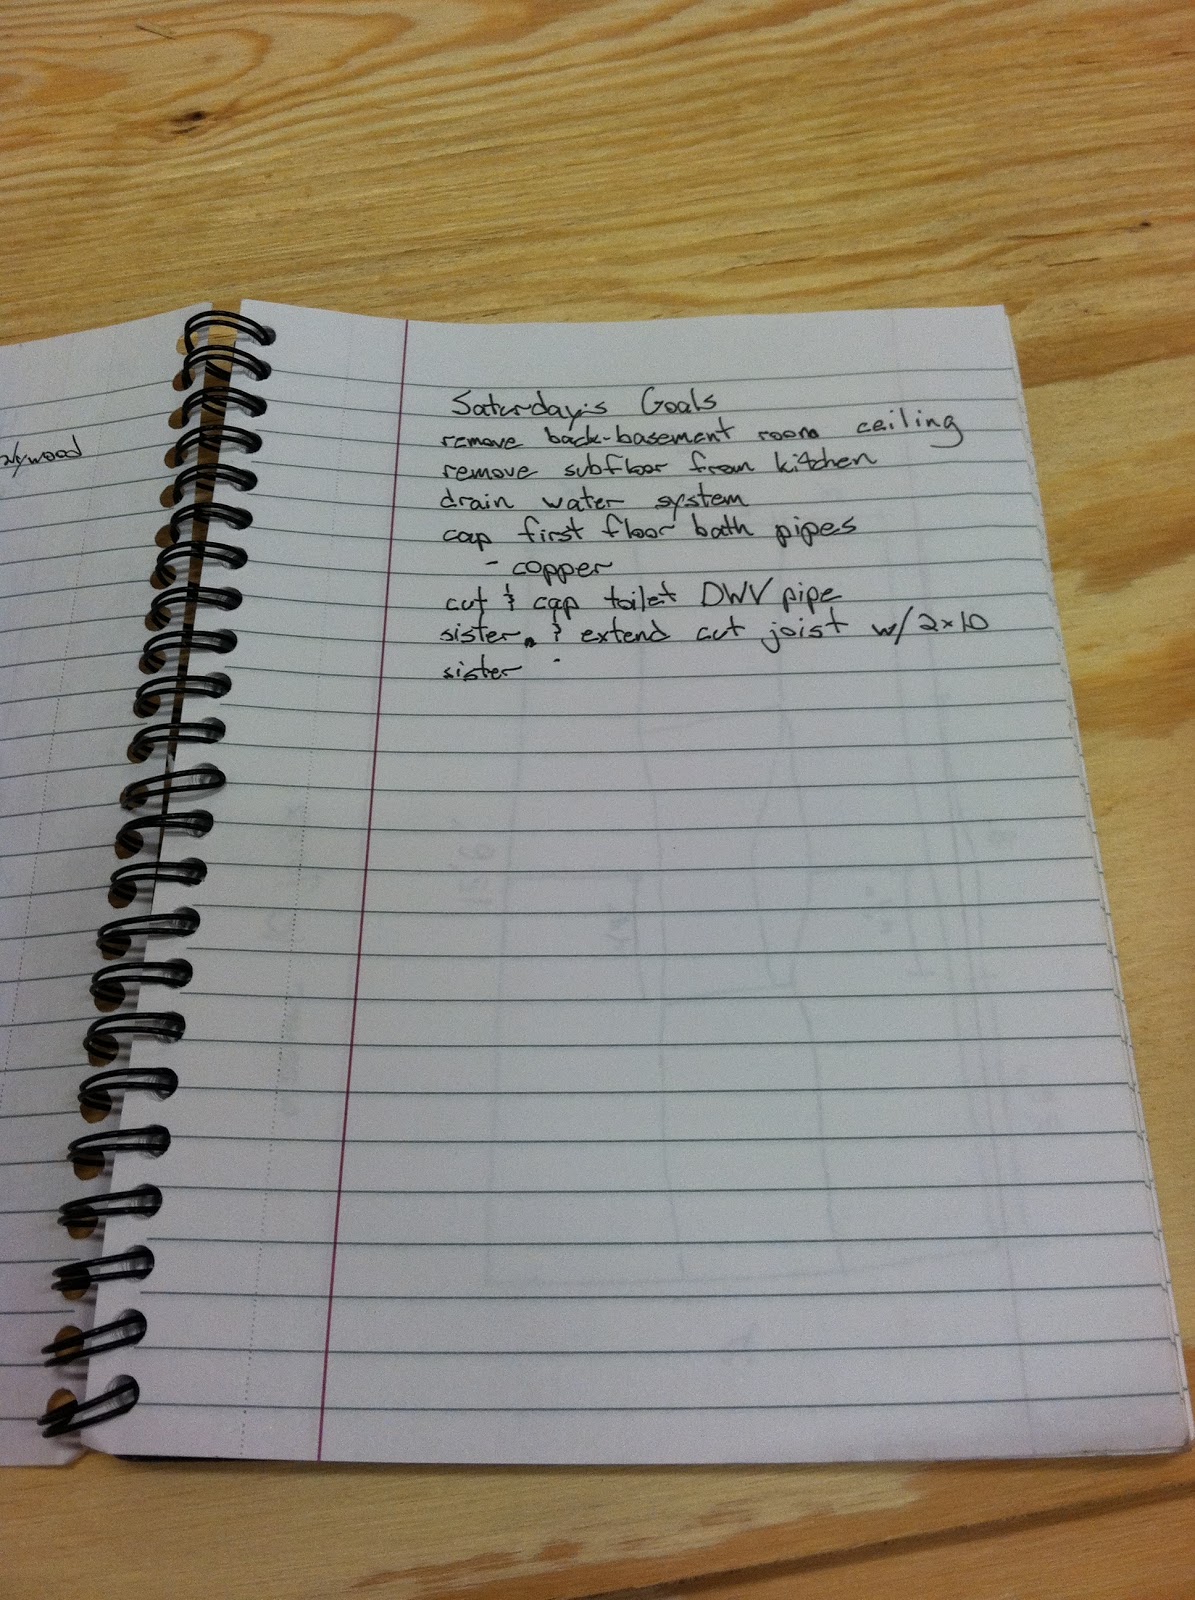 Saturday's Goals
remove back-basement room ceiling
remove subfloor from kitchen
drain water system
cap first floor bath pipes
- copper
cut & cap toilet DWV pipe
sister & extend cut joist w/ 2x10
sister